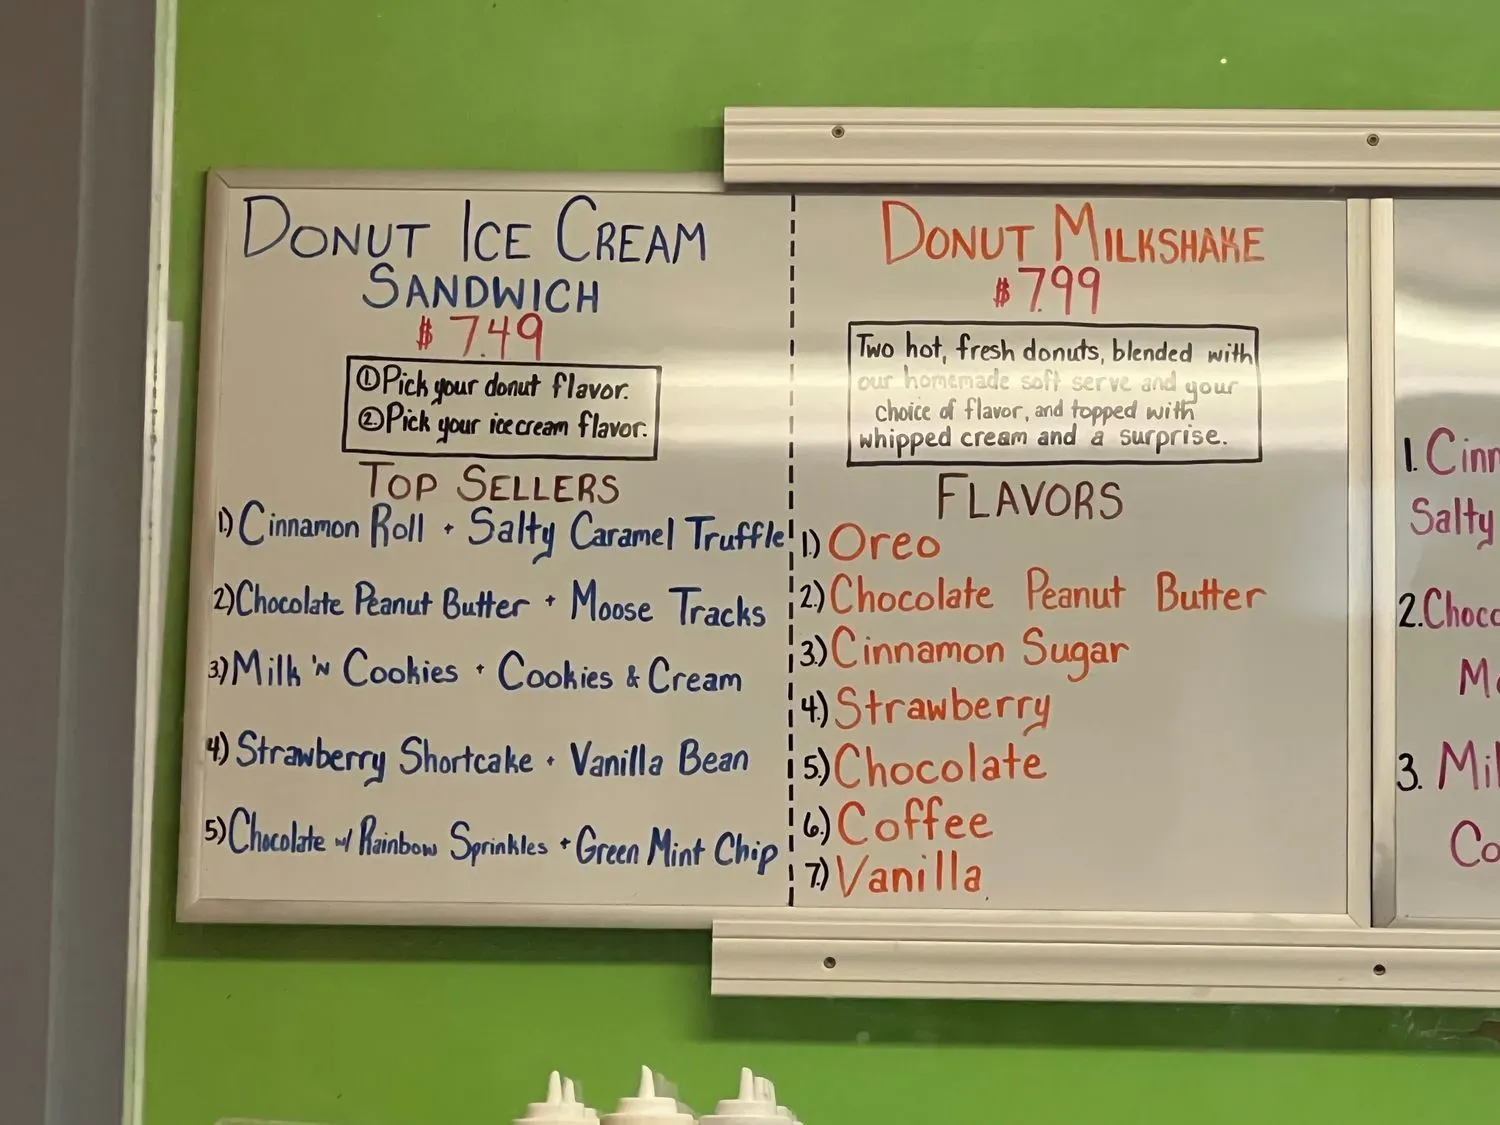 DONUT ICE CREAM
SANDWICH
$7.49
① Pick your donut flavor.
② Pick your ice cream flavor.
TOP SELLERS
1.) Cinnamon Roll + Salty Caramel Truffle
2.) Chocolate Peanut Butter + Moose Tracks
3.) Milk 'N Cookies + Cookies & Cream
4.) Strawberry Shortcake + Vanilla Bean
5.) Chocolate w/ Rainbow Sprinkles + Green Mint Chip
DONUT MILKSHAKE
$7.99
Two hot, fresh donuts, blended with
our homemade soft serve and your
choice of flavor, and topped with
whipped cream and a surprise.
FLAVORS
1.) Oreo
2.) Chocolate Peanut Butter
3.) Cinnamon Sugar
4.) Strawberry
5.) Chocolate
6.) Coffee
7.) Vanilla
1. Cinn
Salty
2. Choco
Mo
3. Mil
Co